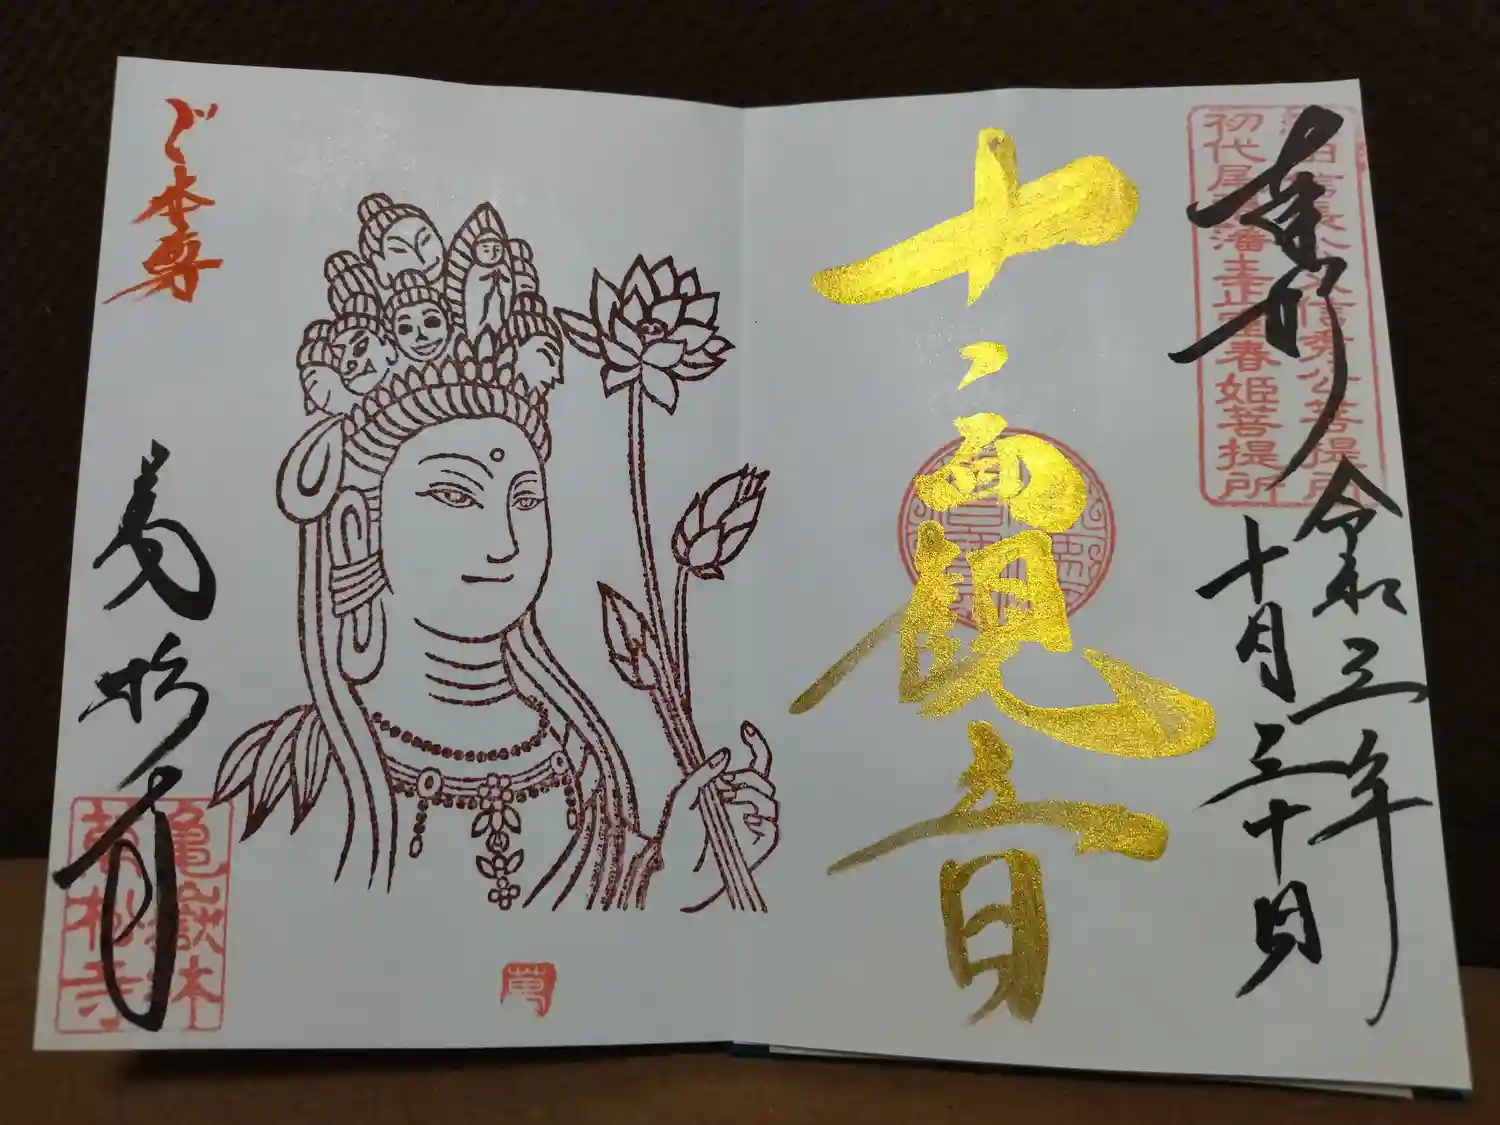 奉拝
織田信長公父信秀公菩提所
初代尾張藩主正室春姫菩提所
令和三年
十月三十日
十一面観音
ご本尊
萬松寺
亀嶽林
萬松寺
萬